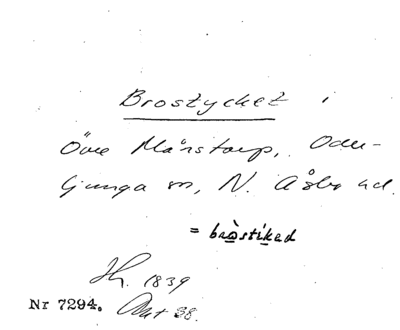 Brostycket i
Övre Månstorp, Oder-
ljunga sn, N. Åsbo hd.
= bròstiked
Jh. 1839
Nr 7294. Akt 38.